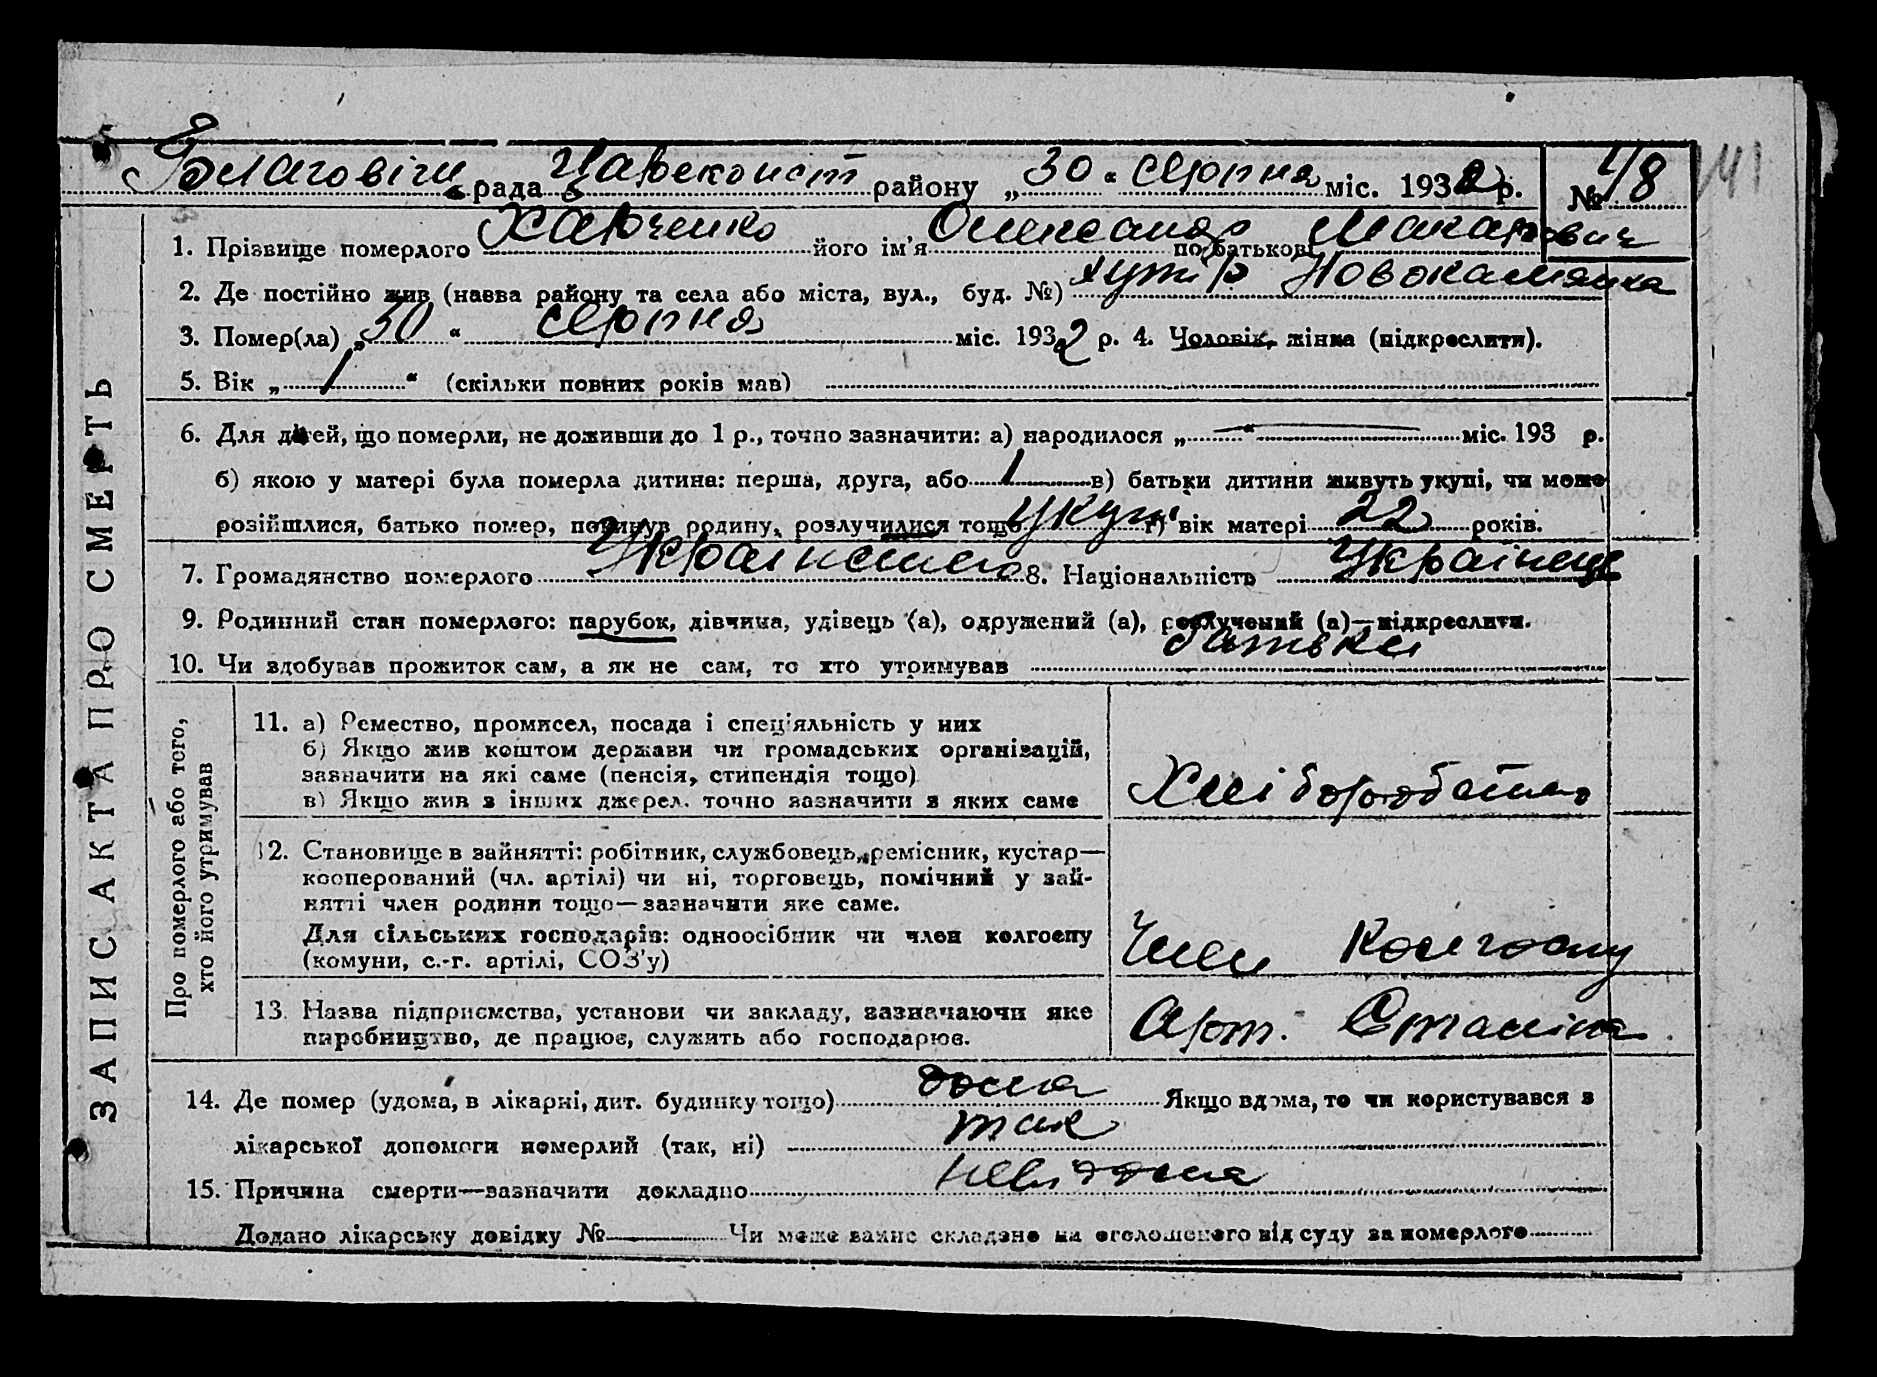 Благовіги рада Царекопст району „30“ серпня міс. 1932 р. № 48 141
1. Прізвище померлого Харченко його ім'я Олександр по батькові Макарович
2. Де постійно жив (назва району та села або міста, вул., буд. №) хутір Новокамянка
3. Помер(ла) „30“ серпня міс. 1932 р. 4. Чоловік, жінка (підкреслити).
5. Вік „1“ (скільки повних років мав)
6. Для дітей, що померли, не доживши до 1 р., точно зазначити: а) народилося „—“ міс. 193 р.
б) якою у матері була померла дитина: перша, друга, або 1 в) батьки дитини живуть укупі, чи може
розійшлися, батько помер, покинув родину, розлучилися тощо укупі г) вік матері 22 років.
7. Громадянство померлого 8. Національність Українець
9. Родинний стан померлого: парубок, дівчина, удівець (а), одружений (а), розлучений (а)—підкреслити.
10. Чи здобував прожиток сам, а як не сам, то хто утримував батьки
ЗАПИС АКТА ПРО СМЕРТЬ
Про померлого або того,
хто його утримував
11. а) Ремество, промисел, посада і спец'яльність у них
б) Якщо жив коштом держави чи громадських організацій,
зазначити на які саме (пенсія, стипендія тощо)
в) Якщо жив з інших джерел. точно зазначити з яких саме
Хліборобство
12. Становище в зайнятті: робітник, службовець, ремісник, кустар—
кооперований (чл. артілі) чи ні, торговець, помічний у зай-
нятті член родини тощо—зазначити яке саме.
Для сільських господарів: одноосібник чи член колгоспу
(комуни, с.-г. артілі, СОЗ'у)
Член Колгоспу
13. Назва підприємства, установи чи закладу, зазначаючи яке
виробництво, де працює, служить або господарює.
Арт. Сталіна
14. Де помер (удома, в лікарні, дит. будинку тощо) дома Якщо вдома, то чи користувався з
лікарської допомоги померлий (так, ні) так
15. Причина смерти—зазначити докладно невідома
Додано лікарську довідку № Чи може запис складено на оголошеного від суду за померлого